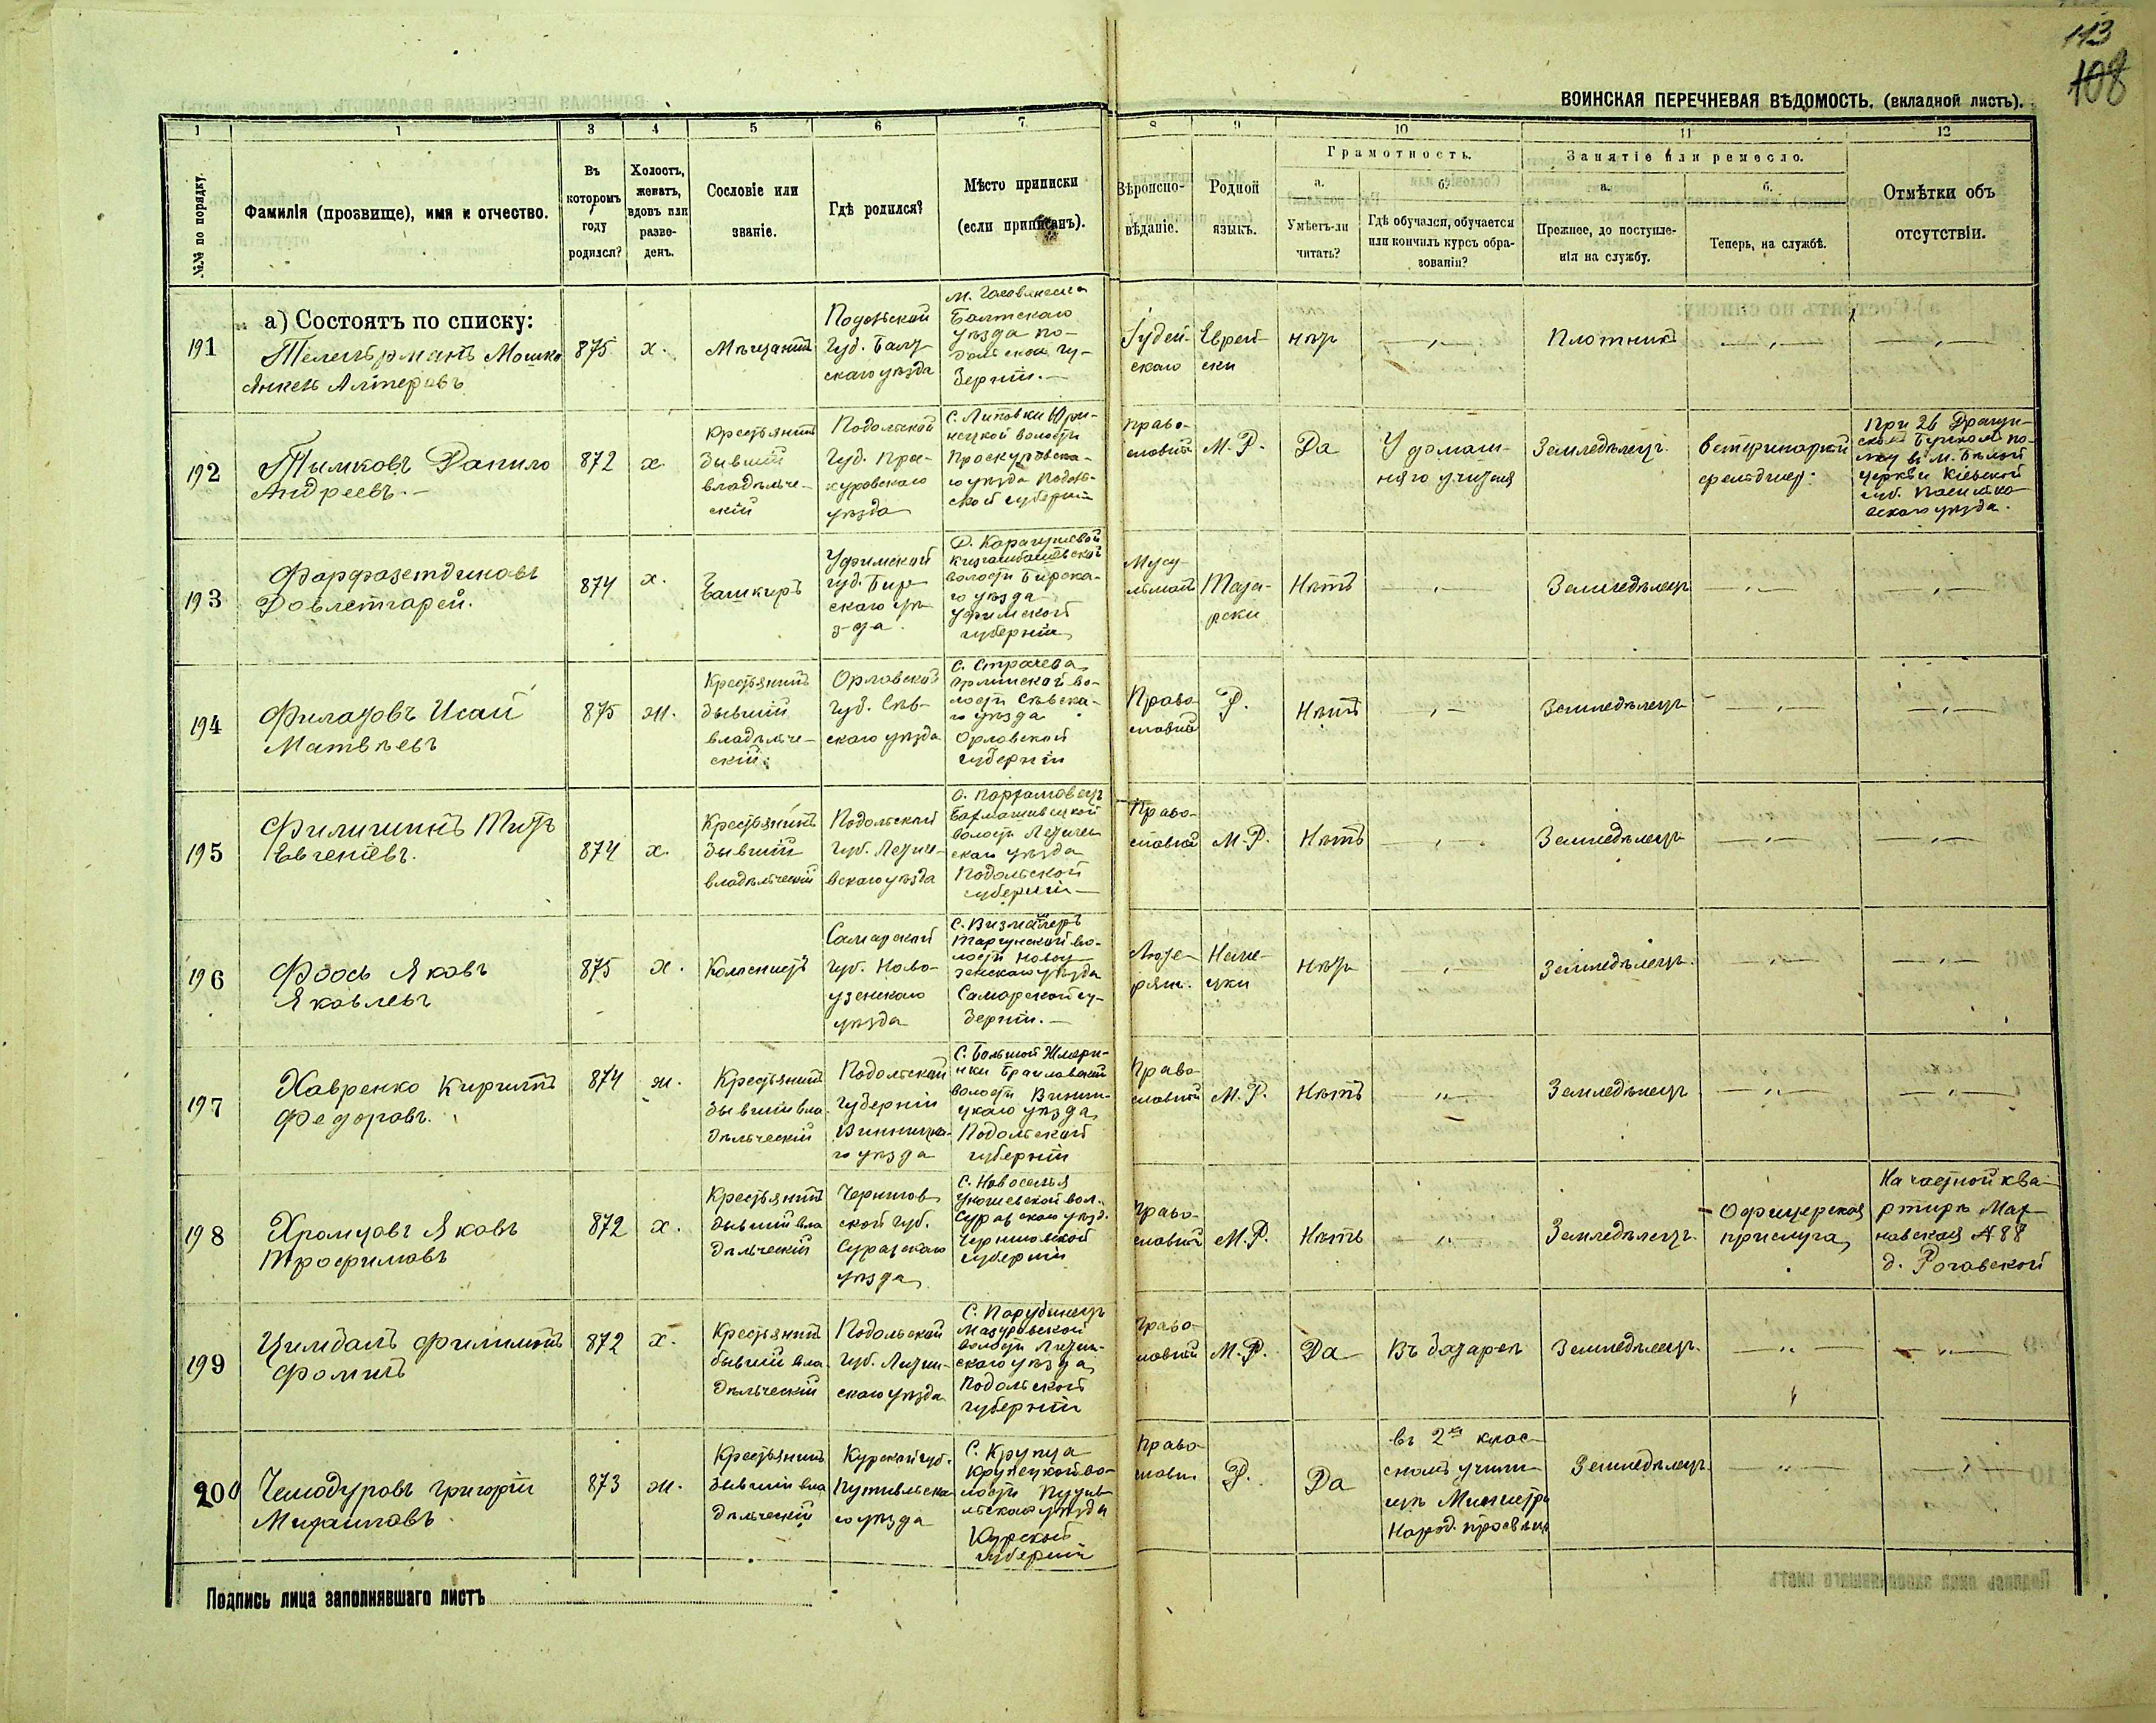 113
108
ВОИНСКАЯ ПЕРЕЧНЕВАЯ ВѢДОМОСТЬ. (вкладной листъ).
1 1 3 4 5 6 7 8 9 10 11 12
№№ по порядку.
Фамилія (прозвище), имя и отчество.
Въ которомъ году родился?
Холостъ, женатъ, вдовъ или разве-денъ.
Сословіе или званіе.
Гдѣ родился?
Мѣсто приписки (если приписанъ).
Вѣроиспо-вѣданіе.
Родной языкъ.
Грамотность.
а. Умѣетъ-ли читать?
б. Гдѣ обучался, обучается или кончилъ курсъ обра-зованія?
Занятіе или ремесло.
а. Прежнее, до поступле-нія на службу.
б. Теперь, на службѣ.
Отмѣтки объ отсутствіи.
а) Состоятъ по списку:
191
Мошко
875
х.
Мѣщанинъ
Подольской
губ. Балт-
скаго уѣзда
Балтскаго
уѣзда По-
дольской гу-
берніи.—
Іудей-
скаго
Еврей-
ски
нѣтъ
Плотникъ
192
Тымковъ Данило
Андреевъ.—
872
х
Крестьянинъ
бывшій
владѣльче-
скій
Подольской
губ. Про-
скуровскаго
уѣзда
С. Липовки Юри-
нецкой волости
Проскуровска-
го уѣзда Подоль-
ской губерніи
Право-
славный
М. Р.
Да
У домаш-
няго учителя
Земледѣлецъ.
ветеринарный
фельдшеръ.
При 26 Драгун-
скомъ Бугскомъ по-
лку въ М. Бѣлой
церкви Кіевской
губ. Васильков-
скаго уѣзда.
193
Довлетгарей.
874
х.
Башкиръ
Уфимской
губ. Бир-
скаго уѣ-
зда.
волости Бирска-
го уѣзда
Уфимской
губерніи
Мусу-
льманъ
Тата-
рски
Нѣтъ
Земледѣлецъ
194
Филатовъ Исай
Матвѣевъ
875
ж.
Крестьянинъ
бывшій
владѣльче-
скій.
Орловской
губ. Сѣв-
скаго уѣзда
С. Страчева
во-
лости Сѣвска-
го уѣзда
Орловской
губерніи
Право-
славный
Р.
Нѣтъ
Земледѣлецъ
195
Титъ
874
х.
Крестьянинъ
бывшій
владѣльческій
Подольской
губ. Летиче-
вскаго уѣзда
волости Летичев-
скаго уѣзда
Подольской
губерніи—
Право-
славный
М. Р.
Нѣтъ
Земледѣлецъ
196
Фоось Яковъ
Яковлевъ
875
х.
Колонистъ
Самарской
губ. Ново-
узенскаго
уѣзда
во-
лости Новоу-
зенскаго уѣзда
Самарской гу-
берніи.—
Люте-
ран.
Неме-
цки
нѣтъ
Земледѣлецъ.
197
Хавренко Кирилъ
Федоровъ.
874
ж.
Крестьянинъ
бывшій вла-
дѣльческій
Подольской
губерніи
Винницка-
го уѣзда
С. Большой Жмери-
нки Браиловской
волости Винни-
цкаго уѣзда
Подольской
губерніи
Право-
славный
М. Р.
Нѣтъ
Земледѣлецъ
198
Хромцовъ Яковъ
Трофимовъ
872
х.
Крестьянинъ
бывшій вла-
дѣльческій
Чернигов-
ской губ.
Суражскаго
уѣзда
С. Новоселья
вол.
Суражскаго уѣзд.
Черниговской
губерніи
Право-
славный
М. Р.
Нѣтъ
Земледѣлецъ.
Офицерская
прислуга
На частной ква-
ртирѣ
№ 88
199
Цимбалъ Филимонъ
Фоминъ
872
х.
Крестьянинъ
бывшій вла-
дѣльческій
Подольской
губ. Литин-
скаго уѣзда
Мазуровской
волости Литин-
скаго уѣзда
Подольской
губерніи
Право-
славный
М. Р.
Да
Земледѣлецъ.
200
Чемодуровъ Григорій
Михаиловъ
873
ж.
Крестьянинъ
бывшій вла-
дѣльческій
Курской губ.
Путивльска-
го уѣзда
С. Крупца
Крупецкой во-
лости Путив-
льскаго уѣзда
Курской
губерніи
Право-
славн.
Р.
Да
въ 2хъ клас-
сномъ учили-
щѣ Министр.
Народ. просвѣщ.
Земледѣлецъ.
Подпись лица заполнявшаго листъ